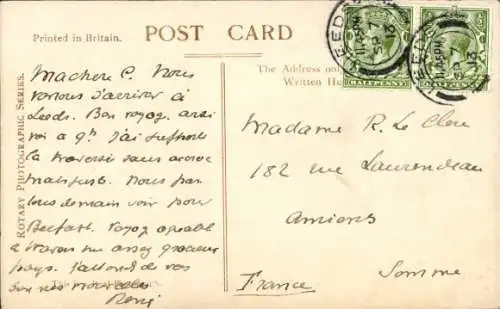 Printed in Britain.
POST CARD
The Address only
Written He
ROTARY PHOTOGRAPHIC SERIES.
LEEDS
11.45PM
SP 7
13
HALFPENNY
Ma chère P. Nous
venons d'arriver à
Leeds. Bon voyage. arri
à 9h. J'ai supporté
la traversée sans aucun
Nous par
tons demain soir pour
Belfast. Voyage agréable
à travers un assez gracieux
pays. J'attends de vos
bonnes nouvelles
René
Madame R. Le Clerc
182 rue Laurendeau
Amiens
Somme
France